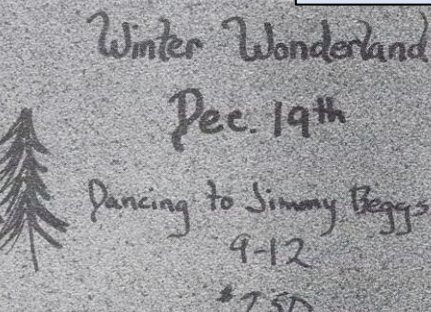 Winter Wonderland
Dec. 19th
Dancing to Jimmy Beggs
9-12